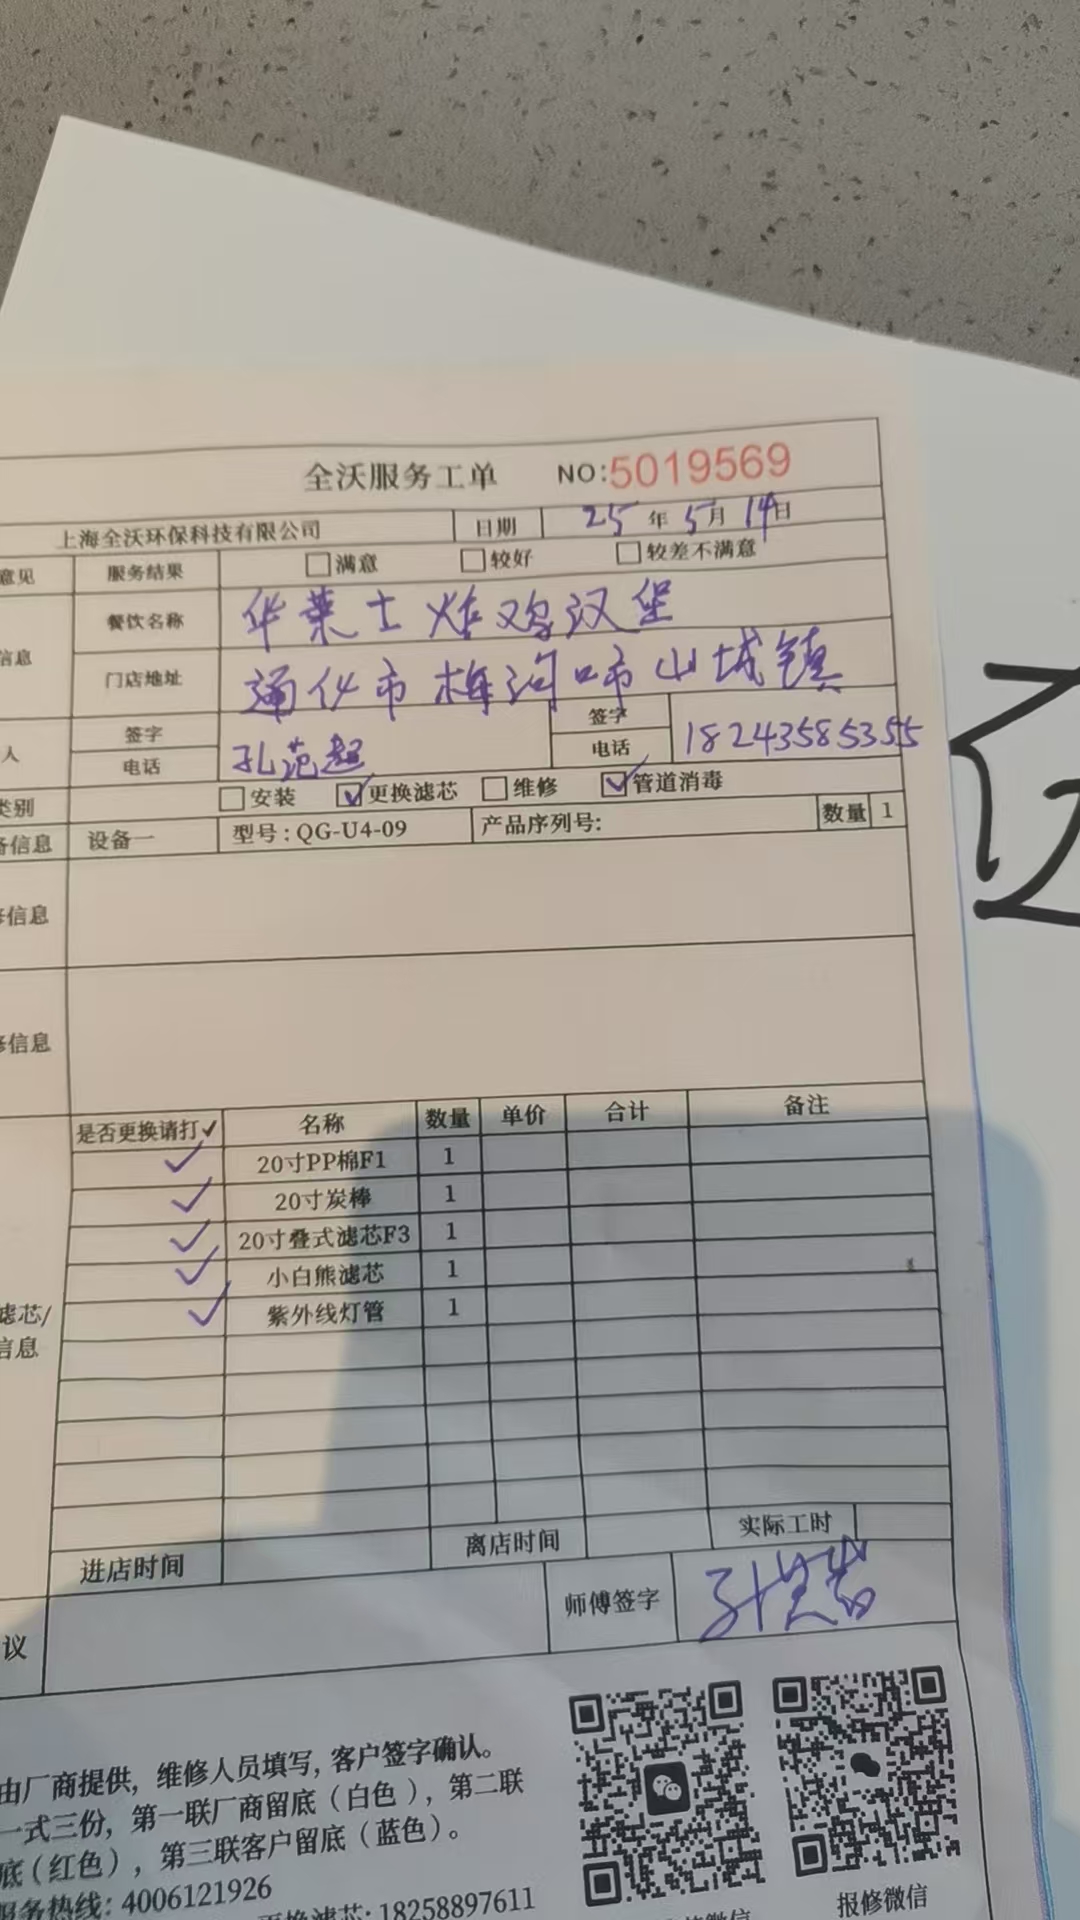 全沃服务工单 NO:5019569
上海全沃环保科技有限公司 日期 25年5月14日
意见 服务结果 满意 较好 较差不满意
信息 餐饮名称 华莱士炸鸡汉堡
门店地址 通化市梅河口市山城镇
人 签字 签字
电话 孔范超 电话 18243585355
类别 安装 ✓更换滤芯 维修 ✓管道消毒
备信息 设备一 型号:QG-U4-09 产品序列号: 数量 1
信息
修信息
是否更换请打✓ 名称 数量 单价 合计 备注
✓ 20寸PP棉F1 1
✓ 20寸炭棒 1
✓ 20寸叠式滤芯F3 1
✓ 小白熊滤芯 1
✓ 紫外线灯管 1
滤芯/
信息
进店时间 离店时间 实际工时
议 师傅签字
由厂商提供，维修人员填写，客户签字确认。
一式三份，第一联厂商留底（白色），第二联
底（红色），第三联客户留底（蓝色）。
服务热线: 4006121926
更换滤芯: 18258897611
报修微信